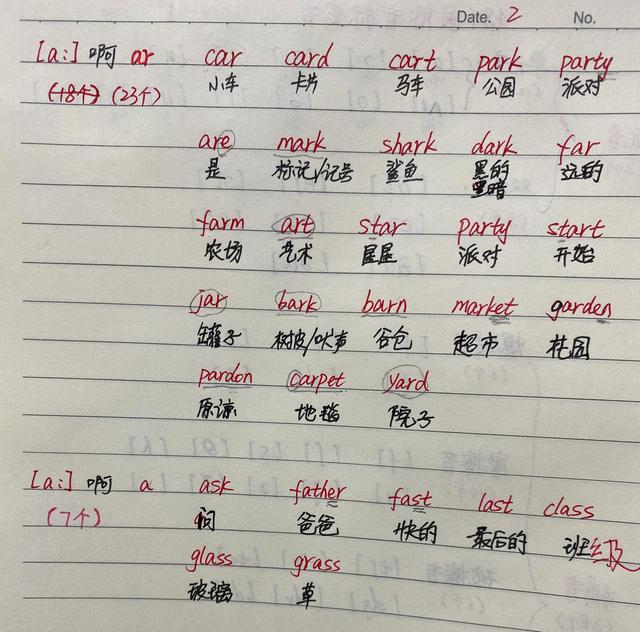 Date. 2 No.
[a:] 啊 ar car card cart park party
小车 卡片 马车 公园 派对
(18个) (23个)
are mark shark dark far
是 标记/记号 鲨鱼 黑的 远的
黑暗
farm art star party start
农场 艺术 星星 派对 开始
jar bark barn market garden
罐子 树皮/吠声 谷仓 超市 花园
pardon carpet yard
原谅 地毯 院子
[a:] 啊 a ask father fast last class
(7个) 问 爸爸 快的 最后的 班级
glass grass
玻璃 草